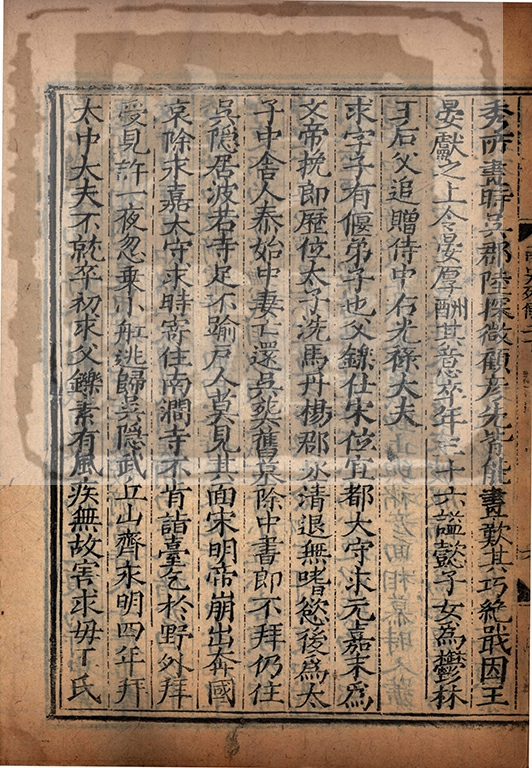 秀所畫時吳郡陸探微顧彥先皆能畫歎其巧絕戢因王
晏獻之上令晏厚酬其意卒年三十六謚懿子女為鬱林
王后父追贈侍中右光祿大夫
求字子有偃弟子也父鑠仕宋位宜都太守求元嘉末為
文帝挽郎歷位太子洗馬丹楊郡丞清退無嗜慾後為太
子中舍人泰始中妻亡還吳葬舊墓除中書郎不拜仍住
吳隱居波若寺足不踰戶人莫見其面宋明帝崩出奔國
哀除永嘉太守求時寄住南澗寺不肯詣臺乞於野外拜
受見許一夜忽乘小舡逃歸吳隱武丘山齊永明四年拜
太中大夫不就卒初求父鑠素有風疾無故害求母王氏